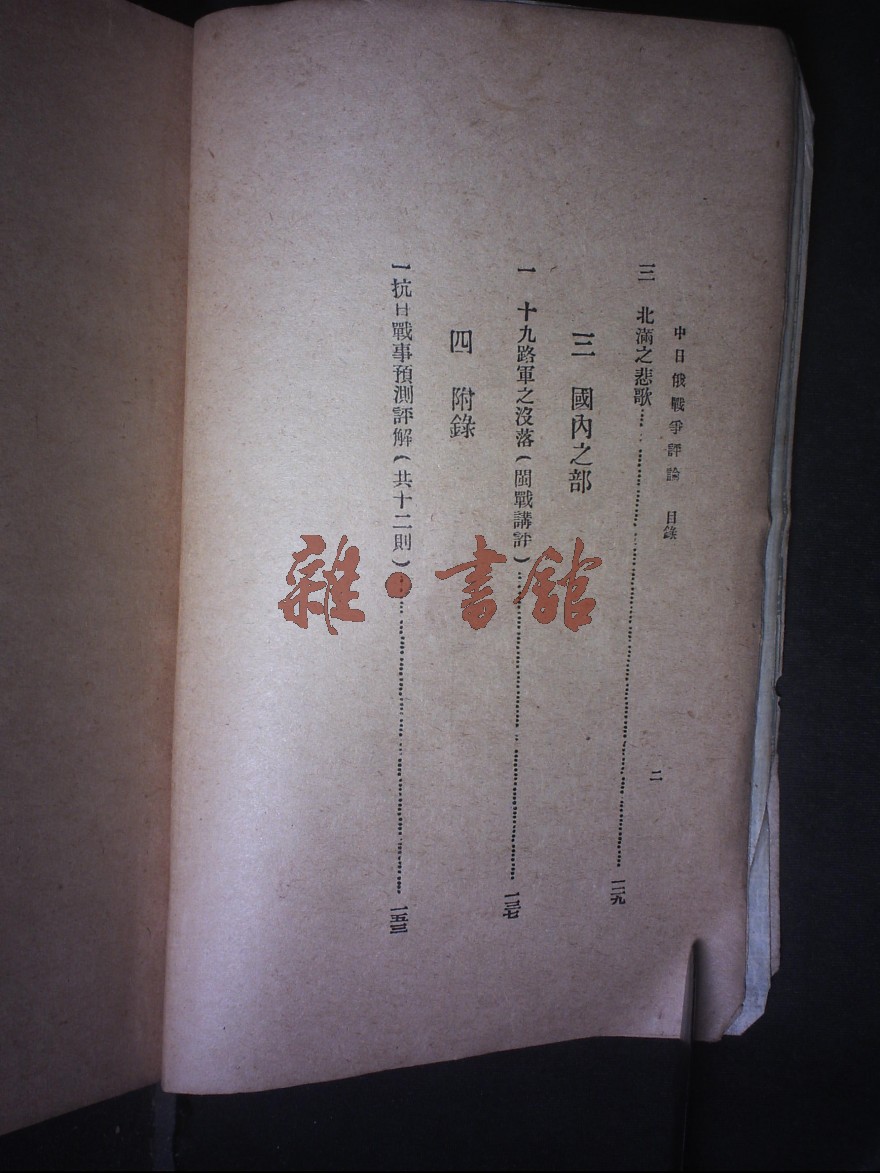 中日俄戰爭評論 目錄
二
三 北滿之悲歌…………一二九
三 國內之部
一 十九路軍之沒落(閩戰講評)…………一三七
四 附錄
一 抗日戰事預測評解(共十二則)…………一五三
雜·書館